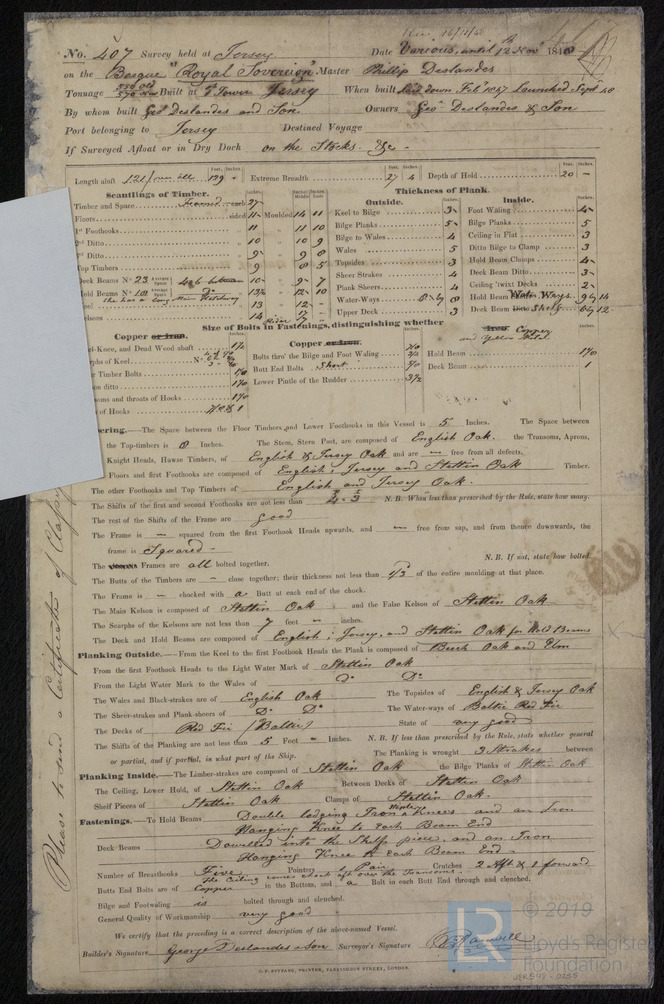 No. 407 Survey held at Jersey Date Various, until 12th Novr 1848
on the Barque "Royal Sovereign" Master Phillip Deslandes
Tonnage Built at Jersey When built laid down Feb 1847 launched Sept 48
By whom built Geo Deslandes and Son Owners Geo Deslandes & Son
Port belonging to Jersey Destined Voyage
If Surveyed Afloat or in Dry Dock on the Stocks. &c -
Feet. Inches. Feet. Inches. Feet. Inches.
Length aloft Extreme Breadth 27 4 Depth of Hold 20 -
Scantlings of Timber.
Timber and Space each 27
Floors sided 11 Moulded 14 11
1st Foothooks 11 11 10
2nd Ditto 10 10 9
3rd Ditto 9 9 8
Top Timbers 9 8 5
Deck Beams No. 23 10 9 7
Hold Beams No. 10
Thickness of Plank.
Outside.
Keel to Bilge 3
Bilge Planks 5
Bilge to Wales 4
Wales 5
Topsides 3
Sheer Strakes 4
Plank Sheers 4
Water-Ways 8 by 8
Upper Deck 3
Inside.
Foot Waling 4
Bilge Planks 5
Ceiling in Flat 3
Ditto Bilge to Clamp 3
Hold Beam Clamps 4
Deck Beam Ditto 3
Ceiling 'twixt Decks 2
Hold Beam Water Ways. 9 by 14
Deck Beam Ditto Shelf 6 by 12
Size of Bolts in Fastenings, distinguishing whether
Copper or Iron. Copper or Iron. Iron Copper and Yellow Metal
Heel-Knee, and Dead Wood abaft
Bolts thro' the Bilge and Foot Waling
Butt End Bolts Short
Lower Pintle of the Rudder 3 1/2
Hold Beam
Deck Beam 1
Timbering.—The Space between the Floor Timbers and Lower Foothooks in this Vessel is 5 Inches. The Space between
the Top-timbers is 8 Inches. The Stem, Stern Post, are composed of English Oak. the Transoms, Aprons,
Knight Heads, Hawse Timbers, of English & Jersey Oak and are — free from all defects.
Floors and first Foothooks are composed of English Jersey and Stettin Oak Timber.
The other Foothooks and Top Timbers of English and Jersey Oak.
The Shifts of the first and second Foothooks are not less than N.B. When less than prescribed by the Rule, state how many.
The rest of the Shifts of the Frame are good
The Frame is — squared from the first Foothook Heads upwards, and — free from sap, and from thence downwards, the
frame is Squared - N.B. If not, state how bolted.
The Frames are all bolted together.
The Butts of the Timbers are — close together; their thickness not less than 1/3 of the entire moulding at that place.
The Frame is — chocked with a Butt at each end of the chock.
The Main Kelson is composed of Stettin Oak and the False Kelson of Stettin Oak
The Scarphs of the Kelsons are not less than 7 feet — inches.
The Deck and Hold Beams are composed of English, Jersey, and Stettin Oak for Hold Beams
Planking Outside.—From the Keel to the first Foothook Heads the Plank is composed of Beech Oak and Elm
From the first Foothook Heads to the Light Water Mark of Stettin Oak
From the Light Water Mark to the Wales of Do Do
The Wales and Black-strakes are of English Oak The Topsides of English & Jersey Oak
The Sheer-strakes and Plank-sheers of Do Do The Water-ways of Baltic Red Fir
The Decks of Red Fir (Baltic) State of very good
The Shifts of the Planking are not less than 5 Feet — Inches. N.B. If less than prescribed by the Rule, state whether general
or partial, and if partial, in what part of the Ship. The Planking is wrought 3 Strakes between
Planking Inside.—The Limber-strakes are composed of Stettin Oak the Bilge Planks of Stettin Oak
The Ceiling, Lower Hold, of Stettin Oak Between Decks of Stettin Oak
Shelf Pieces of Stettin Oak Clamps of Stettin Oak.
Fastenings.—To Hold Beams Double lodging Iron Knees and an Iron
Hanging Knee to each Beam End
Deck Beams Dowelled into the Shelf piece and an Iron
Hanging Knee to each Beam End -
Number of Breasthooks Five Pointers 1 Pair Crutches 2 Aft & 1 forward
The Ceiling comes short aft over the Transoms.
Butts End Bolts are of Copper in the Bottom, and a Bolt in each Butt End through and clenched.
Bilge and Footwaling is bolted through and clenched.
General Quality of Workmanship very good
We certify that the preceding is a correct description of the above-named Vessel.
Builder's Signature George Deslandes & Son Surveyor's Signature
PRINTER, FARRINGDON STREET, LONDON.
Please to send a Certificate of Class
LR © 2019
Lloyd's Register
Foundation